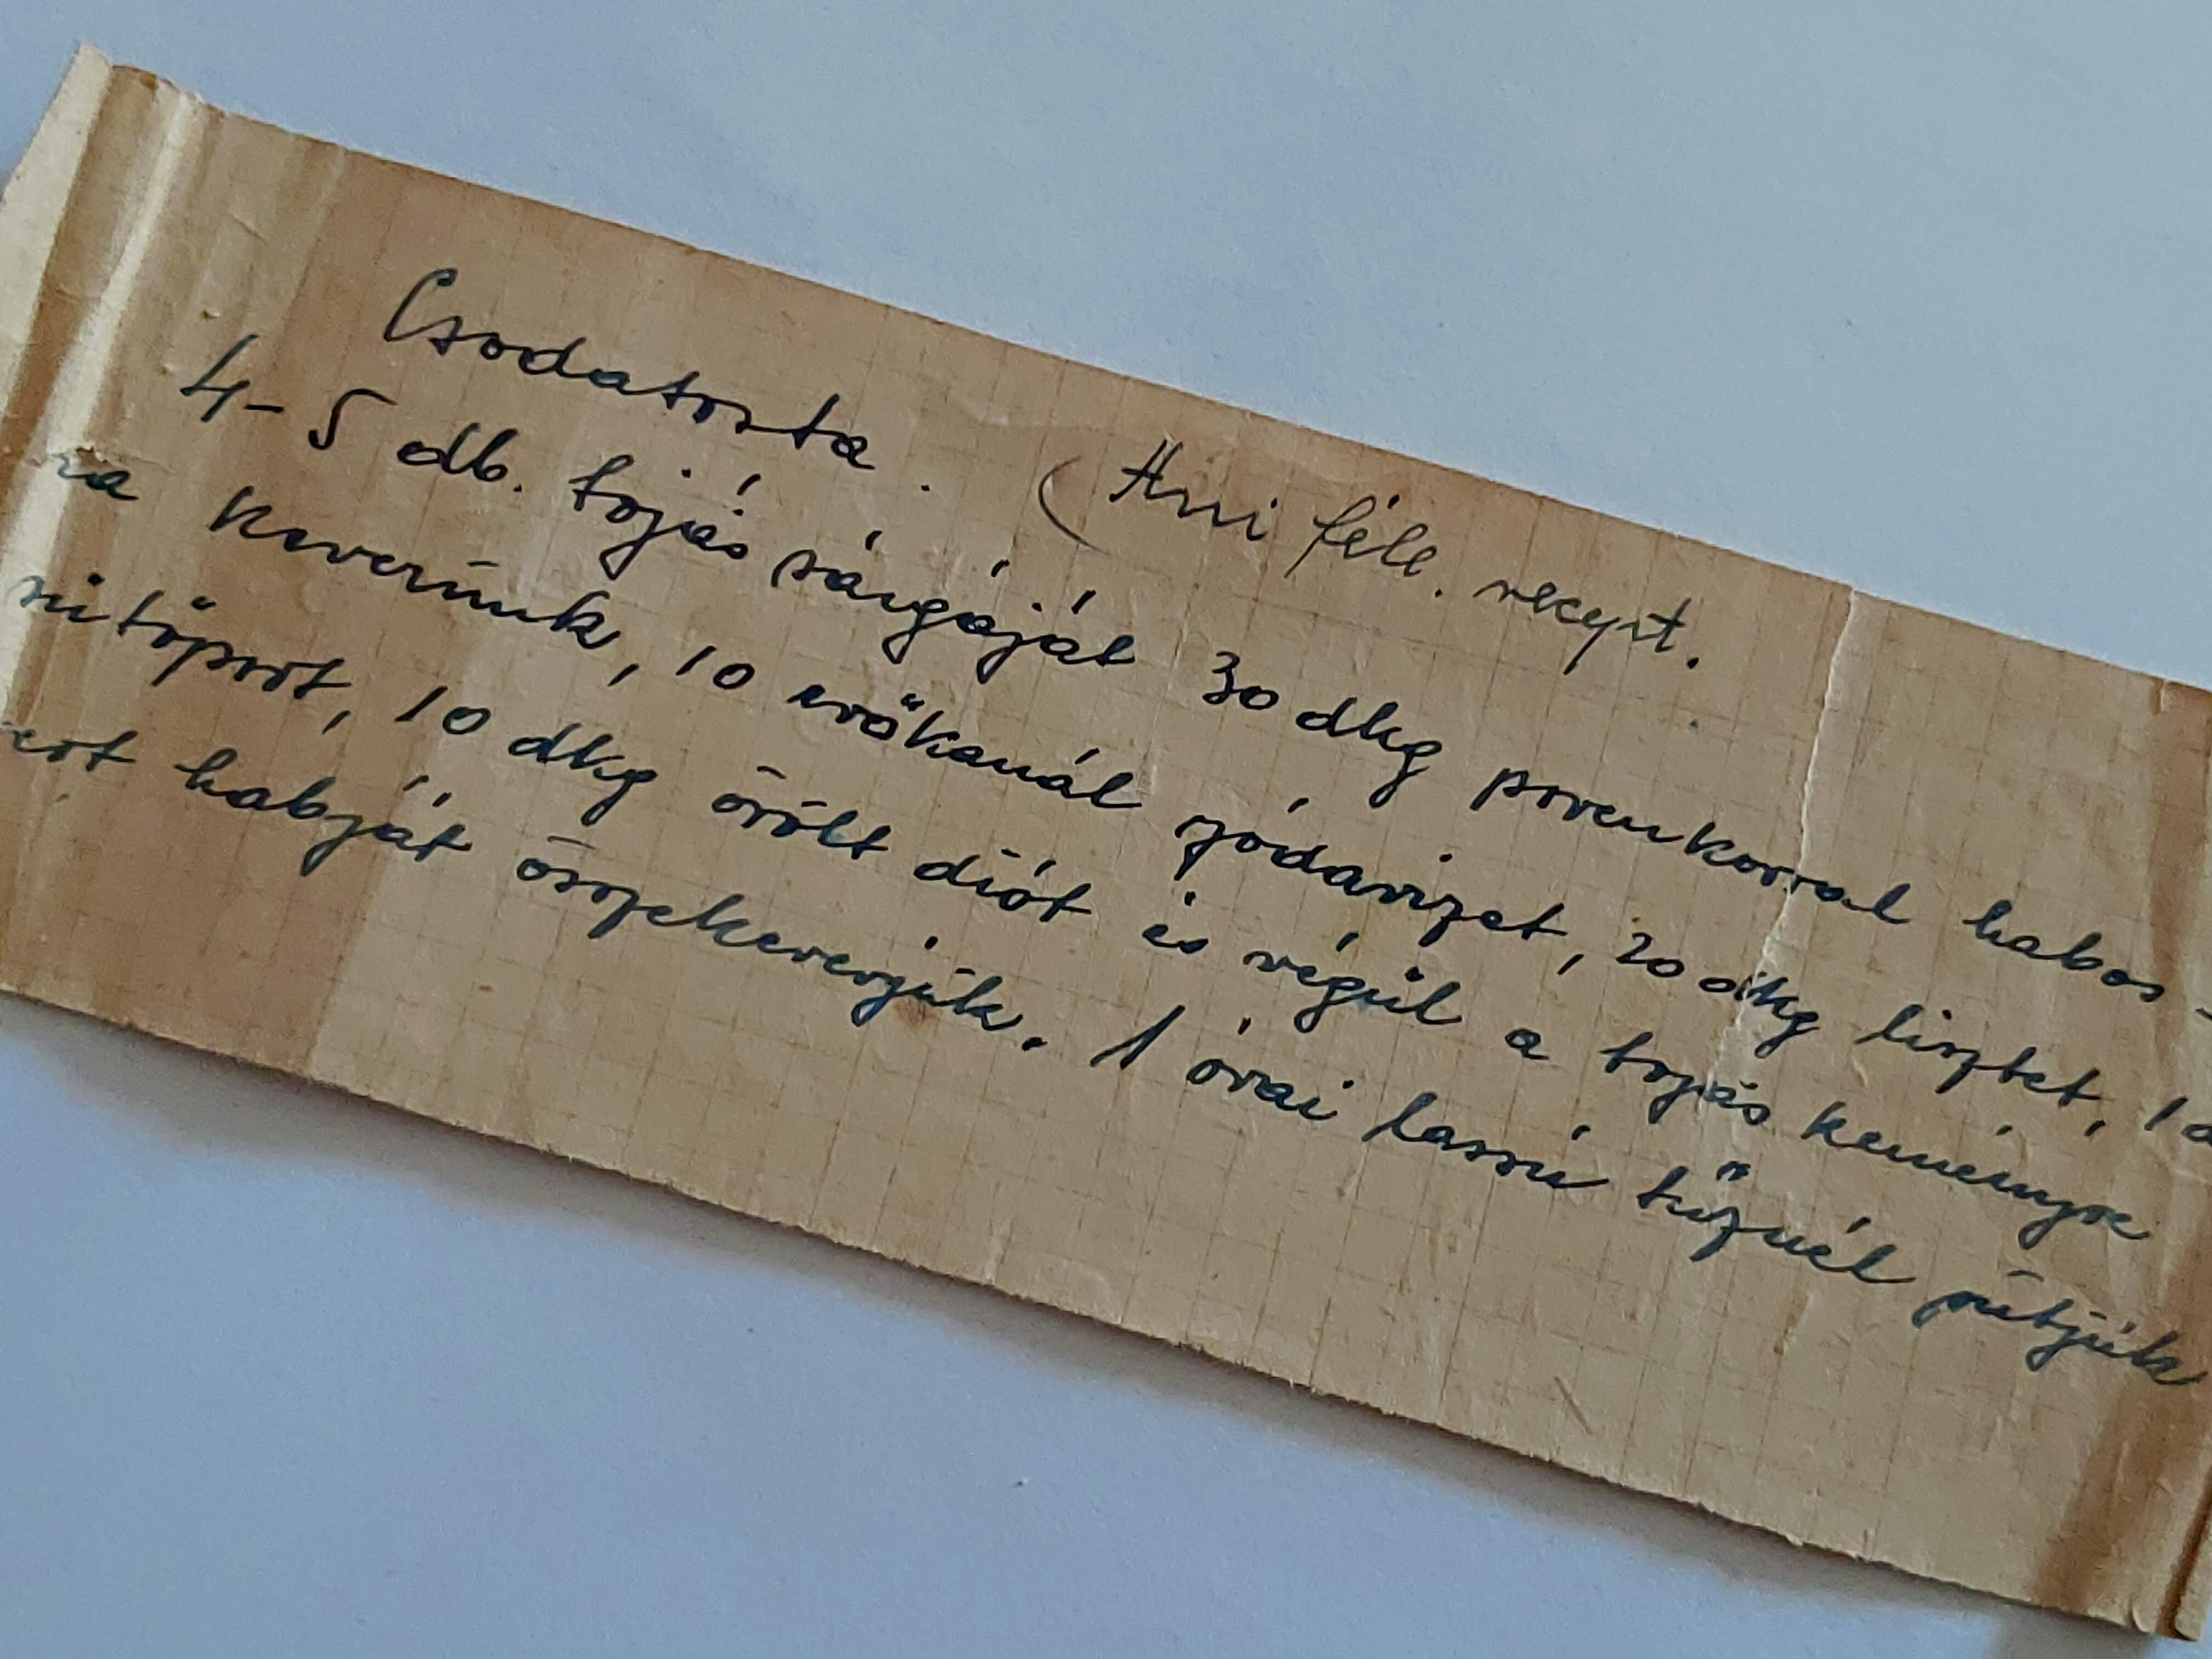 Csodatorta. (Ani féle. recept.
4-5 db. tojás sárgáját 30 dkg porcukorral habos-
ra keverünk, 10 evőkanál szódavizet, 20 dkg lisztet, 1
sütőport, 10 dkg őrölt diót és végül a tojás keményre
vert habját összekeverjük. 1 órai lassú tűznél sütjük